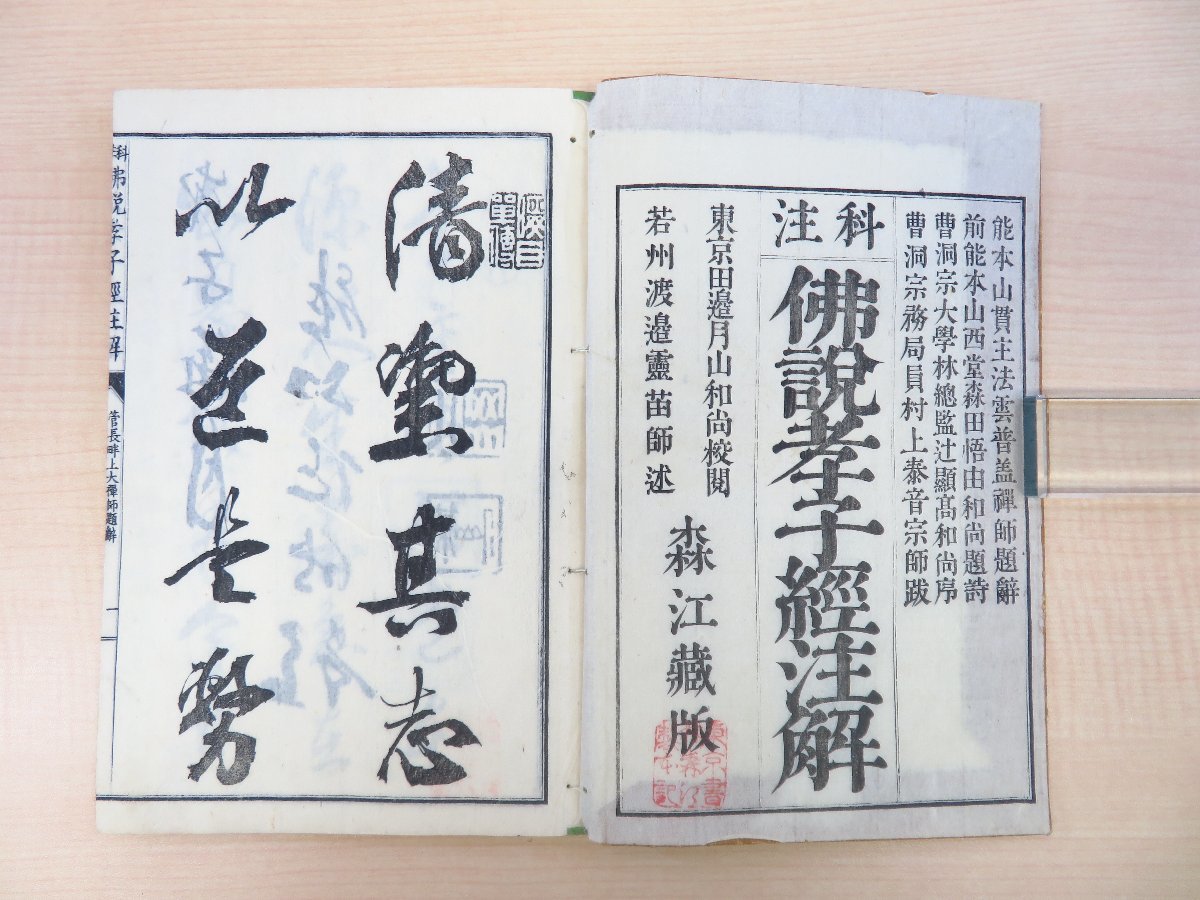 能本山貫主法雲普蓋禪師題辭
前能本山西堂森田悟由和尚題詩
曹洞宗大學林總監辻顯高和尚序
曹洞宗務局員村上泰音宗師跋
科注
佛說孝子經注解
東京田邉月山和尚校閲
若州渡邉靈苗師述
森江藏版
清
其志
以
科註佛說孝子經註解
管長畔上大禪師題辭
一